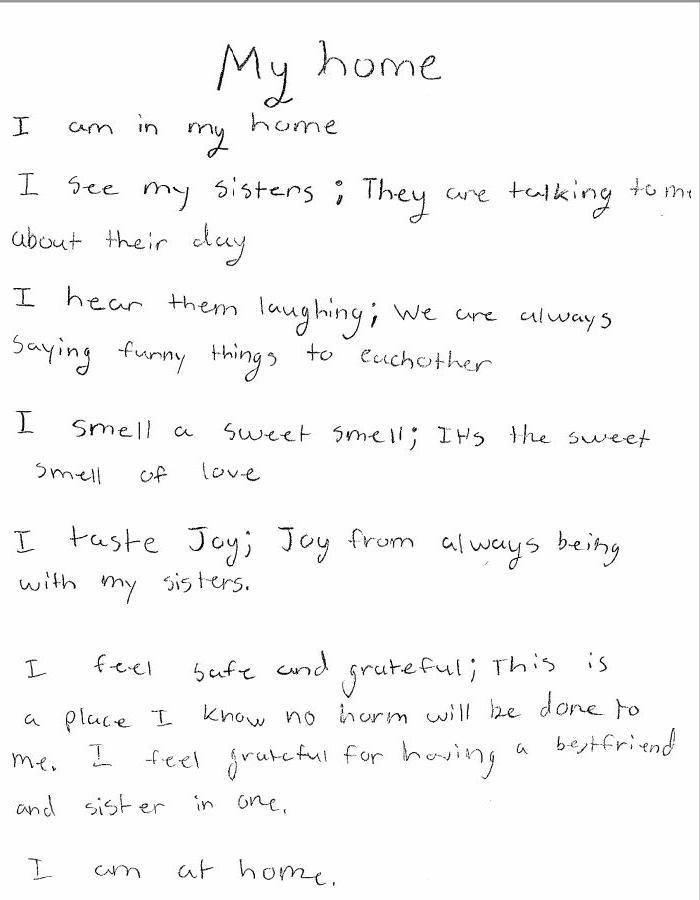 My home
I am in my home
I see my sisters ; They are talking to me
about their day
I hear them laughing; We are always
Saying funny things to eachother
I smell a sweet smell; It's the sweet
smell of love
I taste Joy; Joy from always being
with my sisters.
I feel safe and grateful; This is
a place I know no harm will be done to
me. I feel grateful for having a bestfriend
and sister in one.
I am at home.